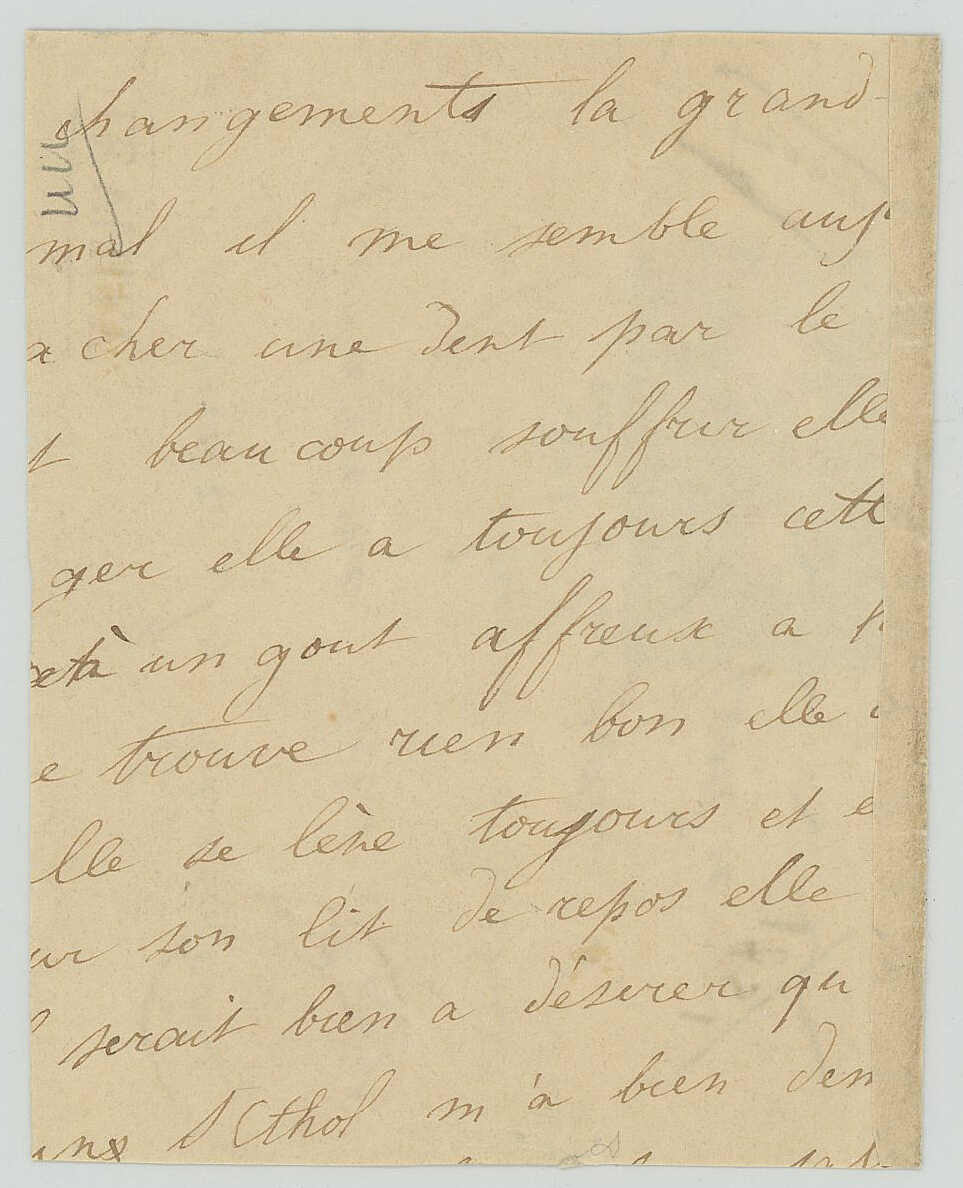 changements la grand-
mal il me semble auj
a cher une dent par le
t beaucoup souffrir elle
ger elle a toujours cett
un gout affreux a
e trouve rien bon elle
lle se lève toujours et e
ur son lit de repos elle
serait bien a désirer qu
m'a bien dem